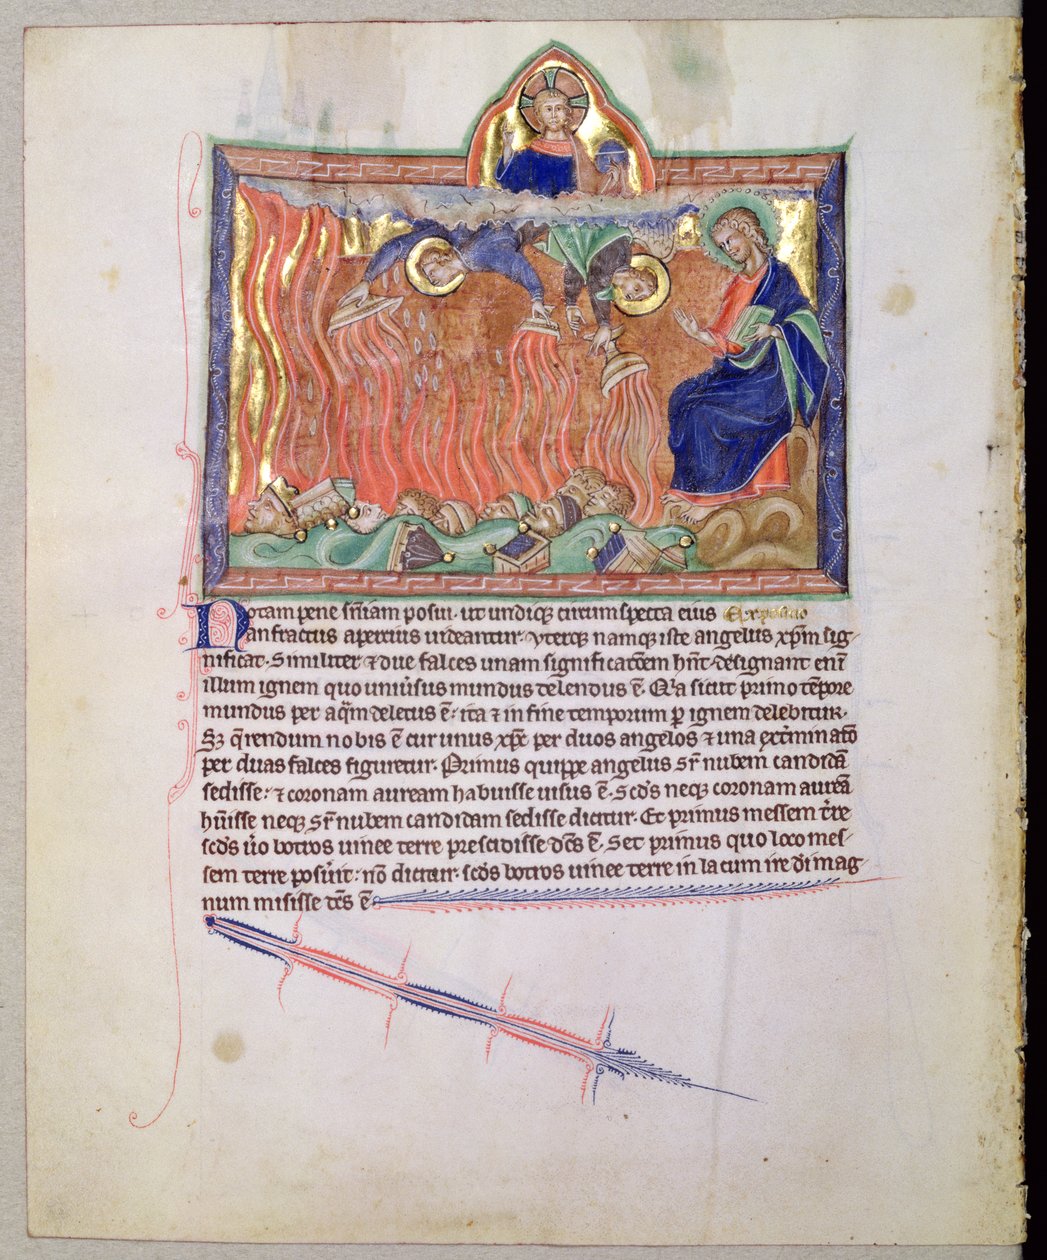 Notam pene sñiam posui. ut undiqꝫ circumspecta eius Expositio
anfractus apertius uideantur. Uterqꝫ namqꝫ iste angelus xp̄m sig
nificat. Similiter ⁊ due falces unam significatõem hñt. designant eni̅
illum ignem quo uniũsus mundus delendus ē. Q̾a sicut primo tẽpore
mundus per aq̃m deletus ē. ita ⁊ in fine temporum ꝑ ignem delebitur.
Sꝫ q̃rendum nobis ē cur unus xp̃c per duos angelos ⁊ una ext̾minatõ
per duas falces figuretur. Primus quippe angelus sr̃ nubem candidã
sedisse. ⁊ coronam auream habuisse uisus ē. Scd̾s neqꝫ coronam aureã
hũisse neqꝫ sr̃ nubem candidam sedisse dicitur. Et primus messem t̾re
scd̾s u̾o botros uinee terre prescidisse. dc̄s ē. Set primus quo loco mes
sem terre posũit. nõ dicitur. scd̾s botros uinee terre in lacum ire d̾i mag
num misisse dc̄s ē